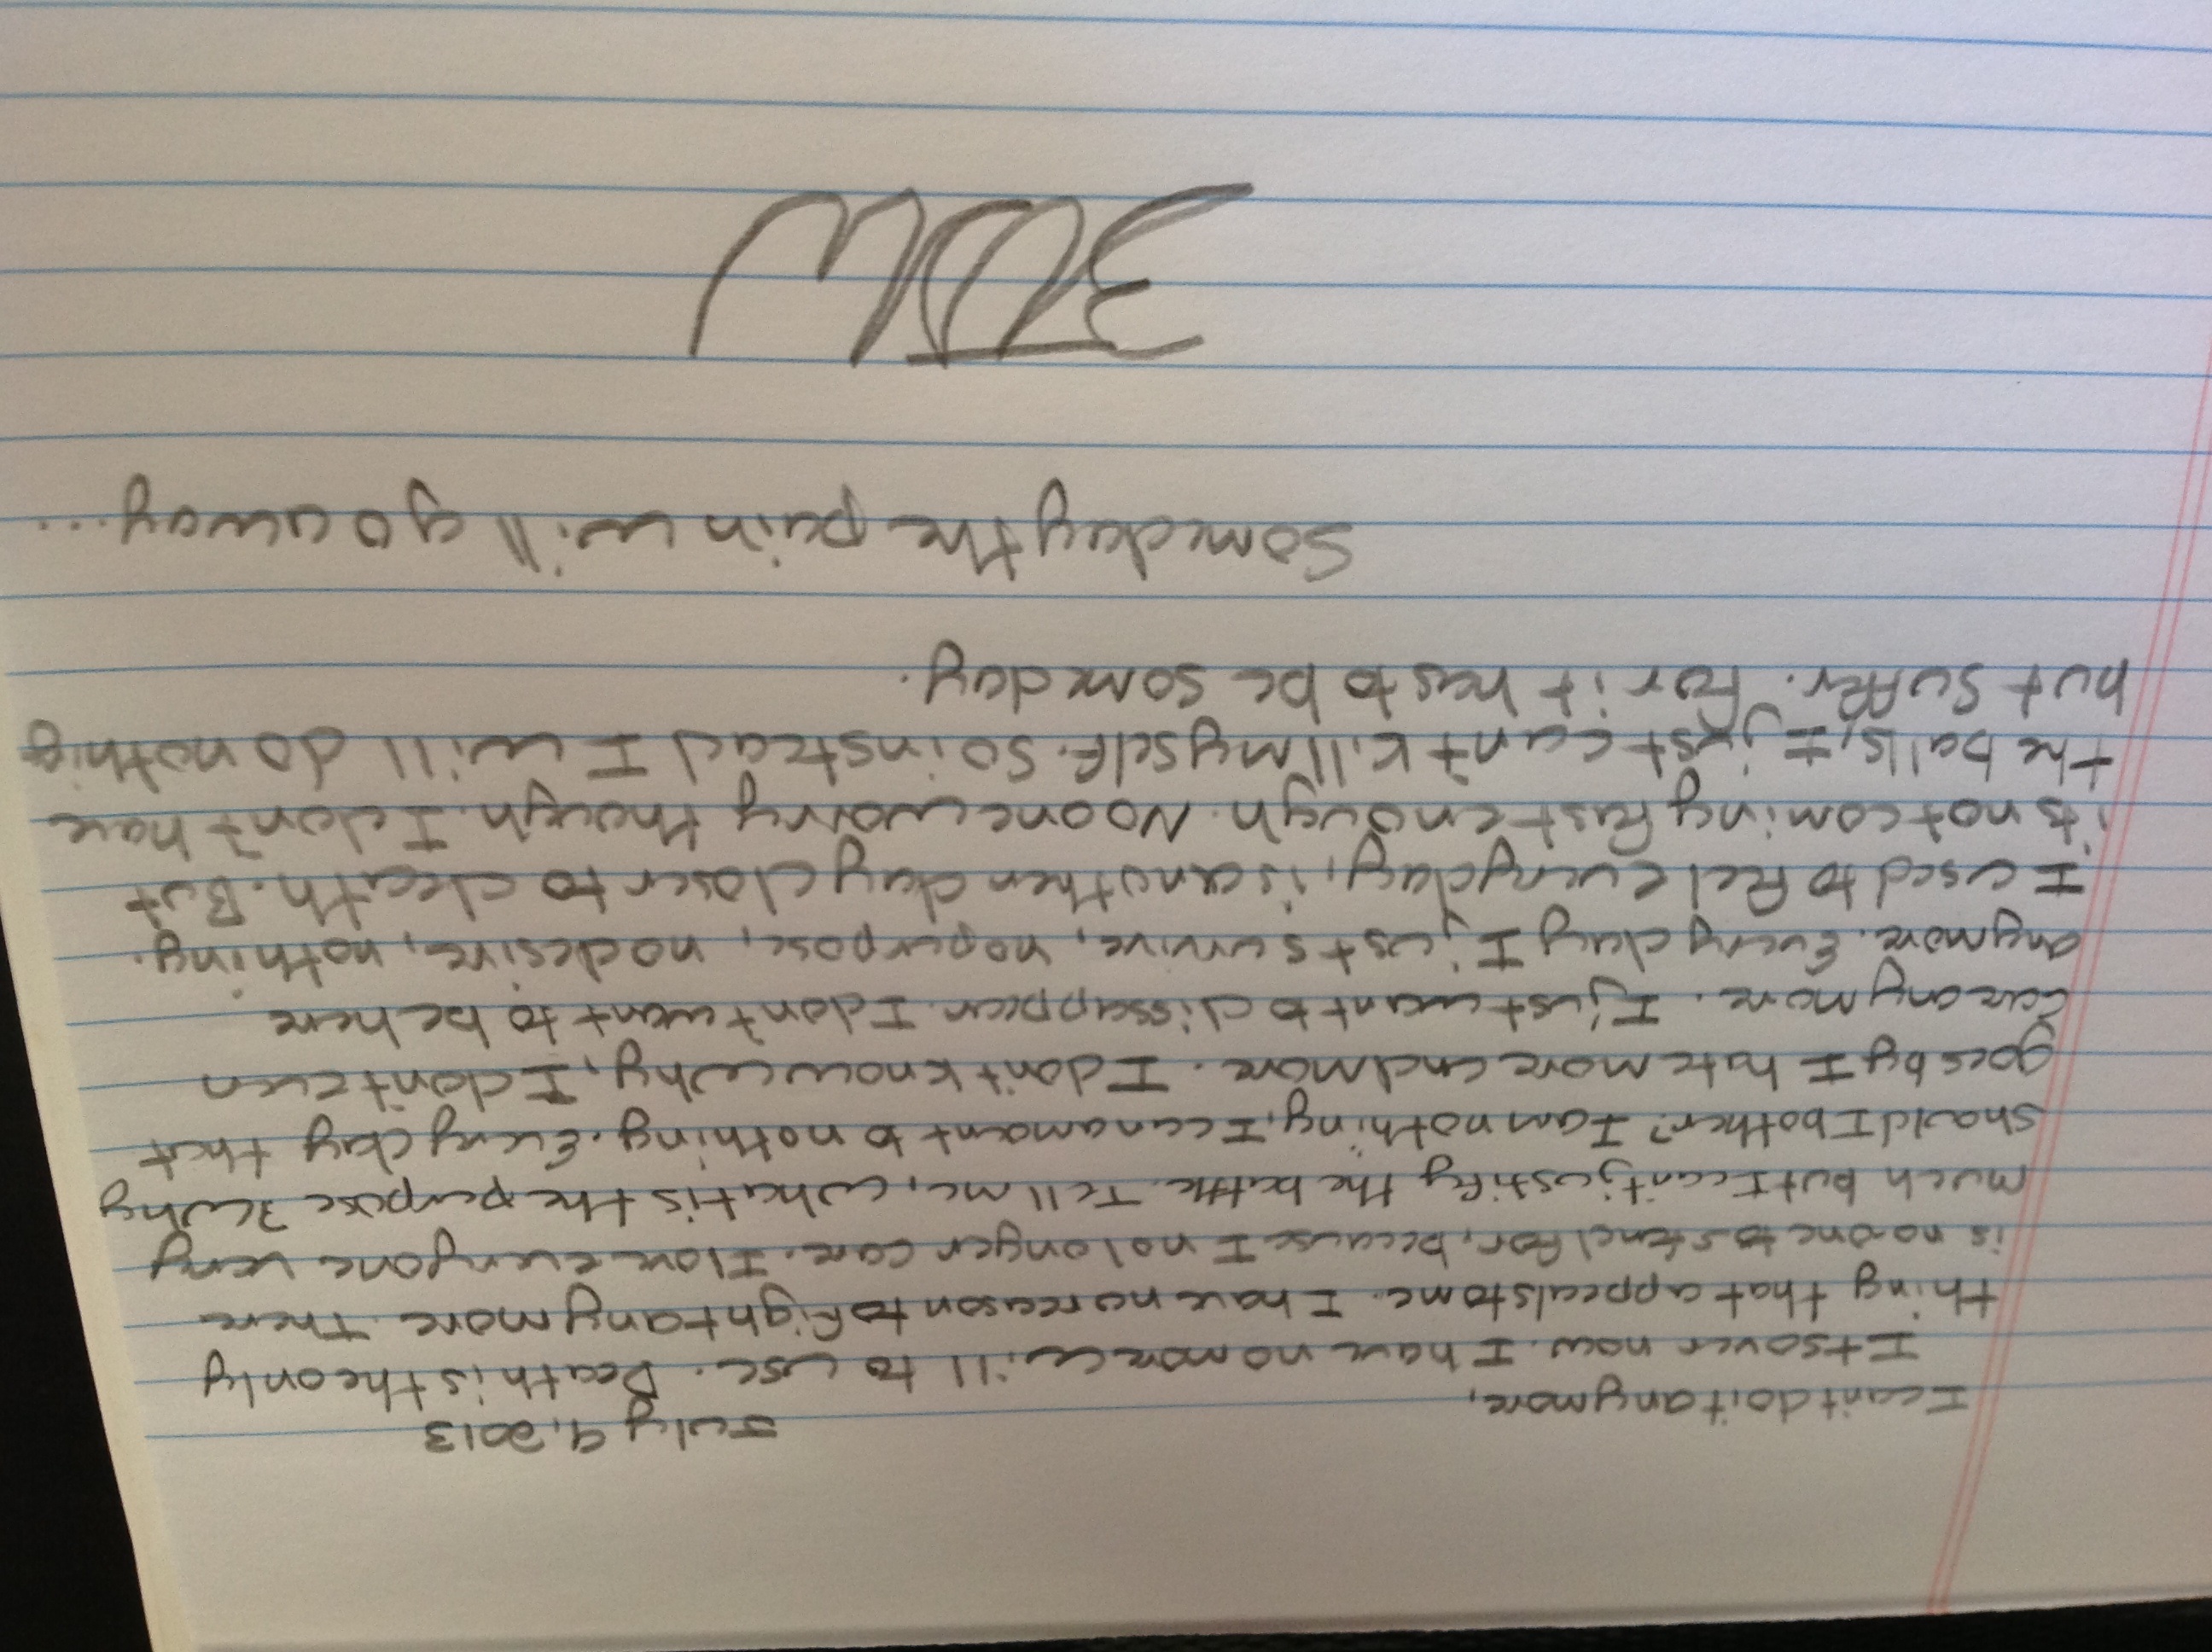 July 9, 2013
I can't do it anymore,
Its over now. I have no more will to use. Death is the only
thing that appeals to me. I have no reason to fight anymore. There
is no one to stand for, because I no longer care. I love everyone very
much but I can't justify the battle. Tell me, what is the purpose? Why
should I bother? I am nothing, I can amount to nothing. Every day that
goes by I hate more and more. I don't know why, I don't even
care anymore. I just want to dissappear. I don't want to be here
anymore. Every day I just survive, no purpose, no desire, nothing.
I used to feel everyday, is another day closer to death. But
its not coming fast enough. No one worry though. I don't have
the balls, I just can't kill myself. So instead I will do nothing
but suffer. For it has to be someday.
Someday the pain will go away...